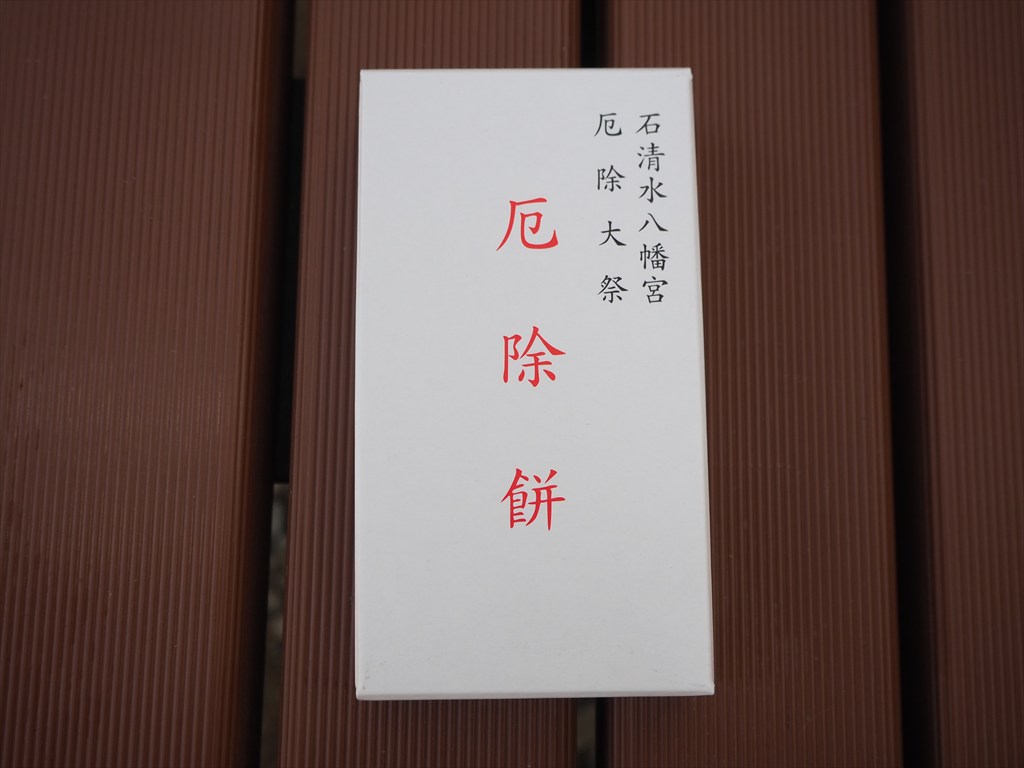 石清水八幡宮
厄除大祭
厄除餅